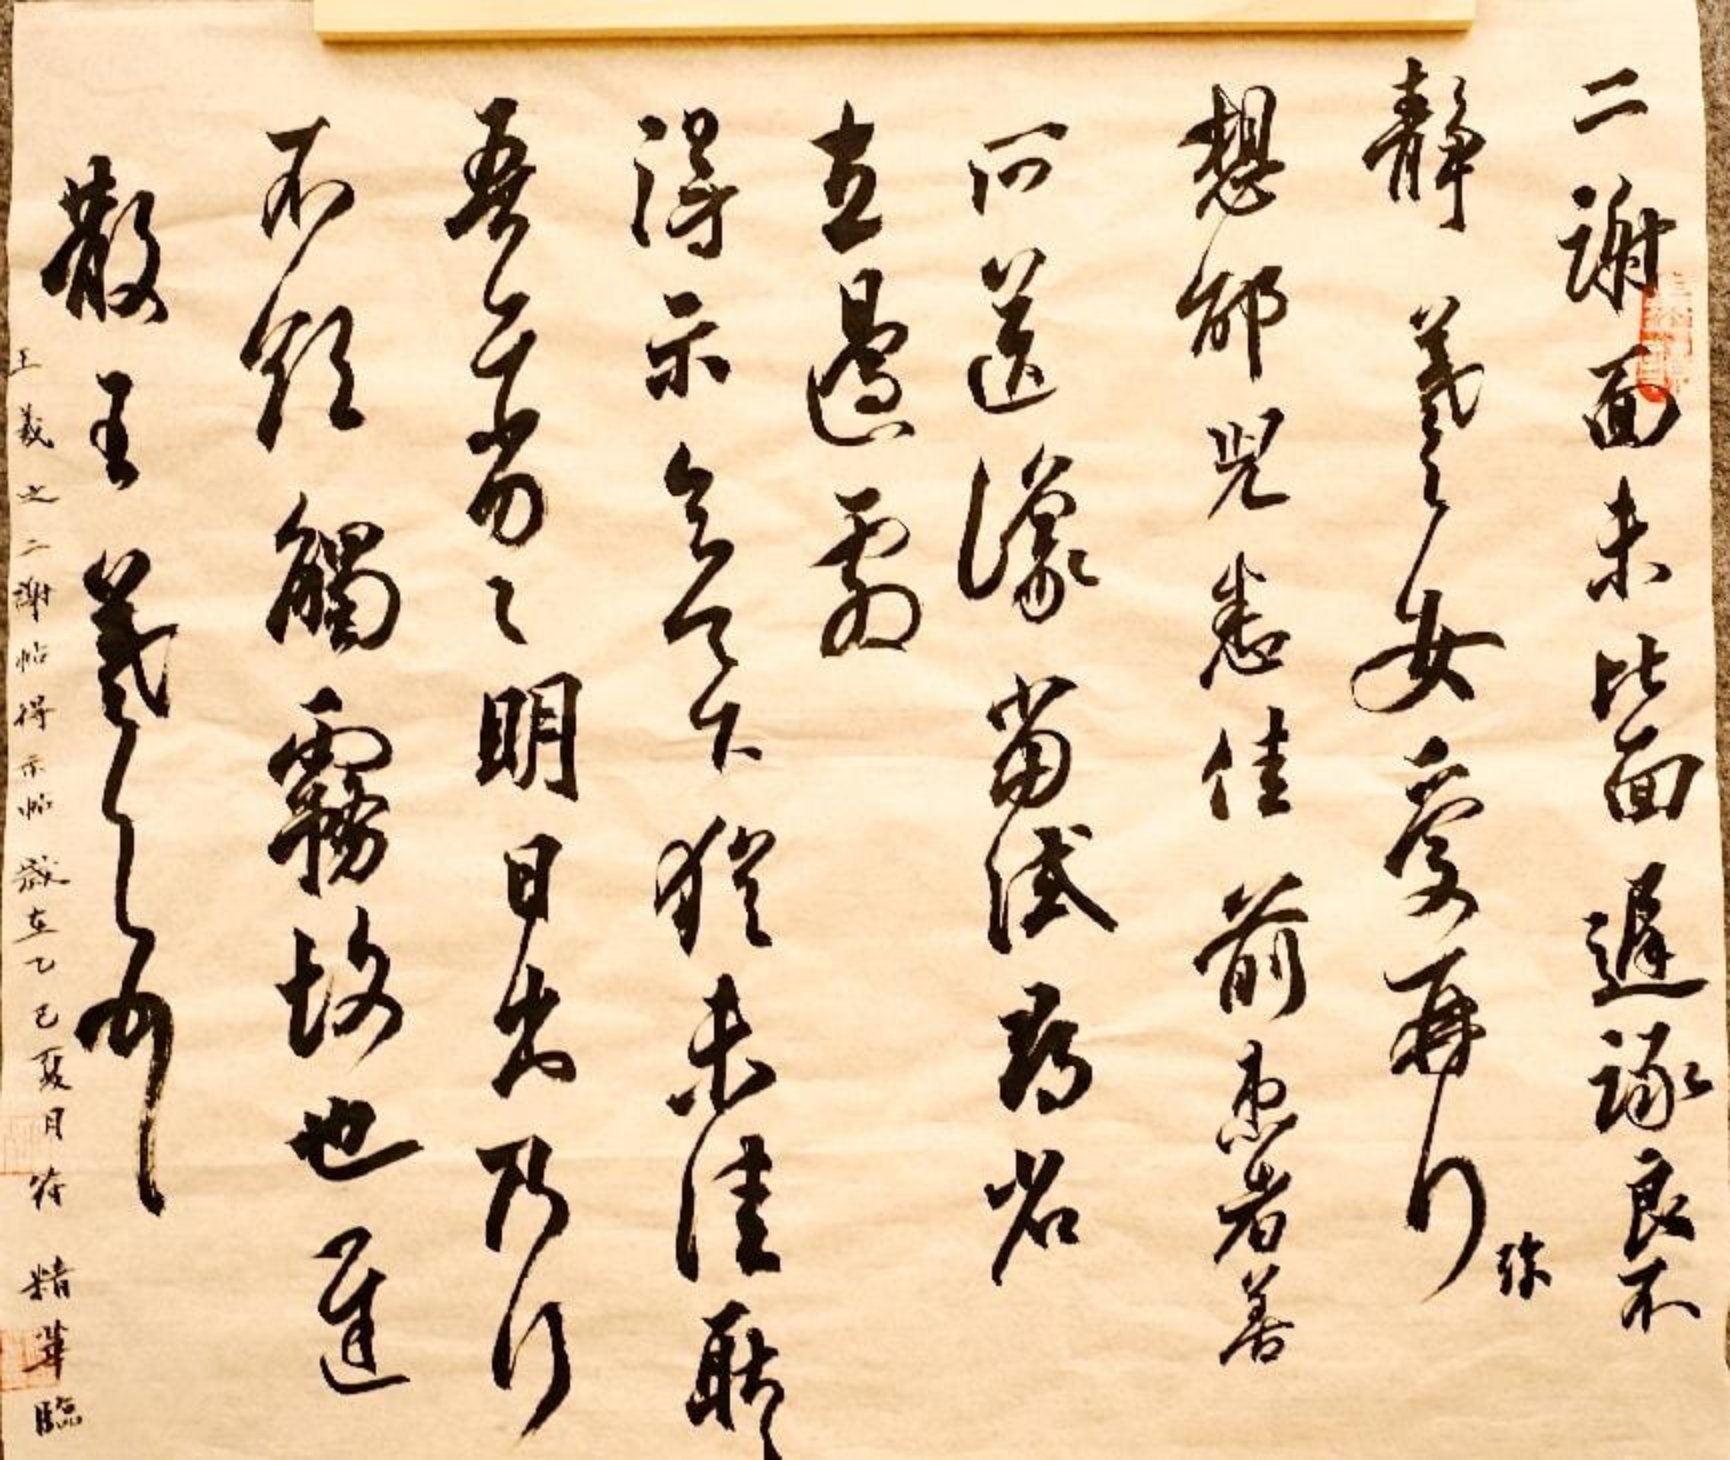 二謝面未比面遲詠良不
靜羲之女愛再拜
珎
想邵兒悉佳前患者善
所送議當試尋省
左邊劇
得示知足下猶未佳耿〻
吾亦劣〻明日出乃行
不欲觸霧故也遲
散王羲之頓首
王羲之二謝帖得示帖 歲在乙巳夏月 精華臨